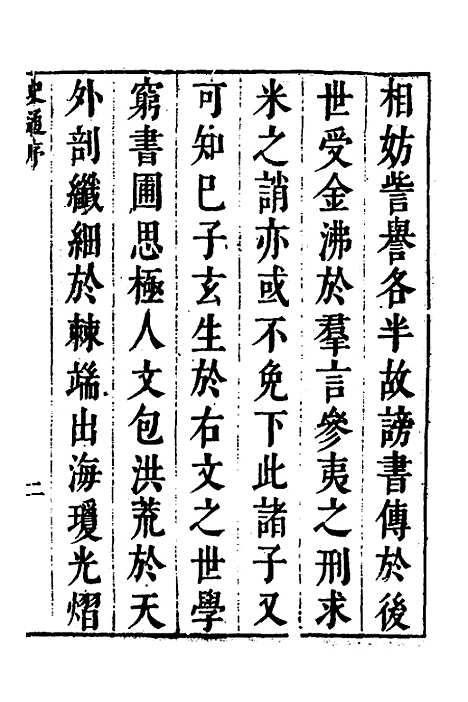 相妨訾譽各半故謗書傳於後
世受金沸於羣言參夷之刑求
米之誚亦或不免下此諸子又
可知已子玄生於右文之世學
窮書圃思極人文包洪荒於天
外剖纖細於棘端出海瓊光熠
史通序
二